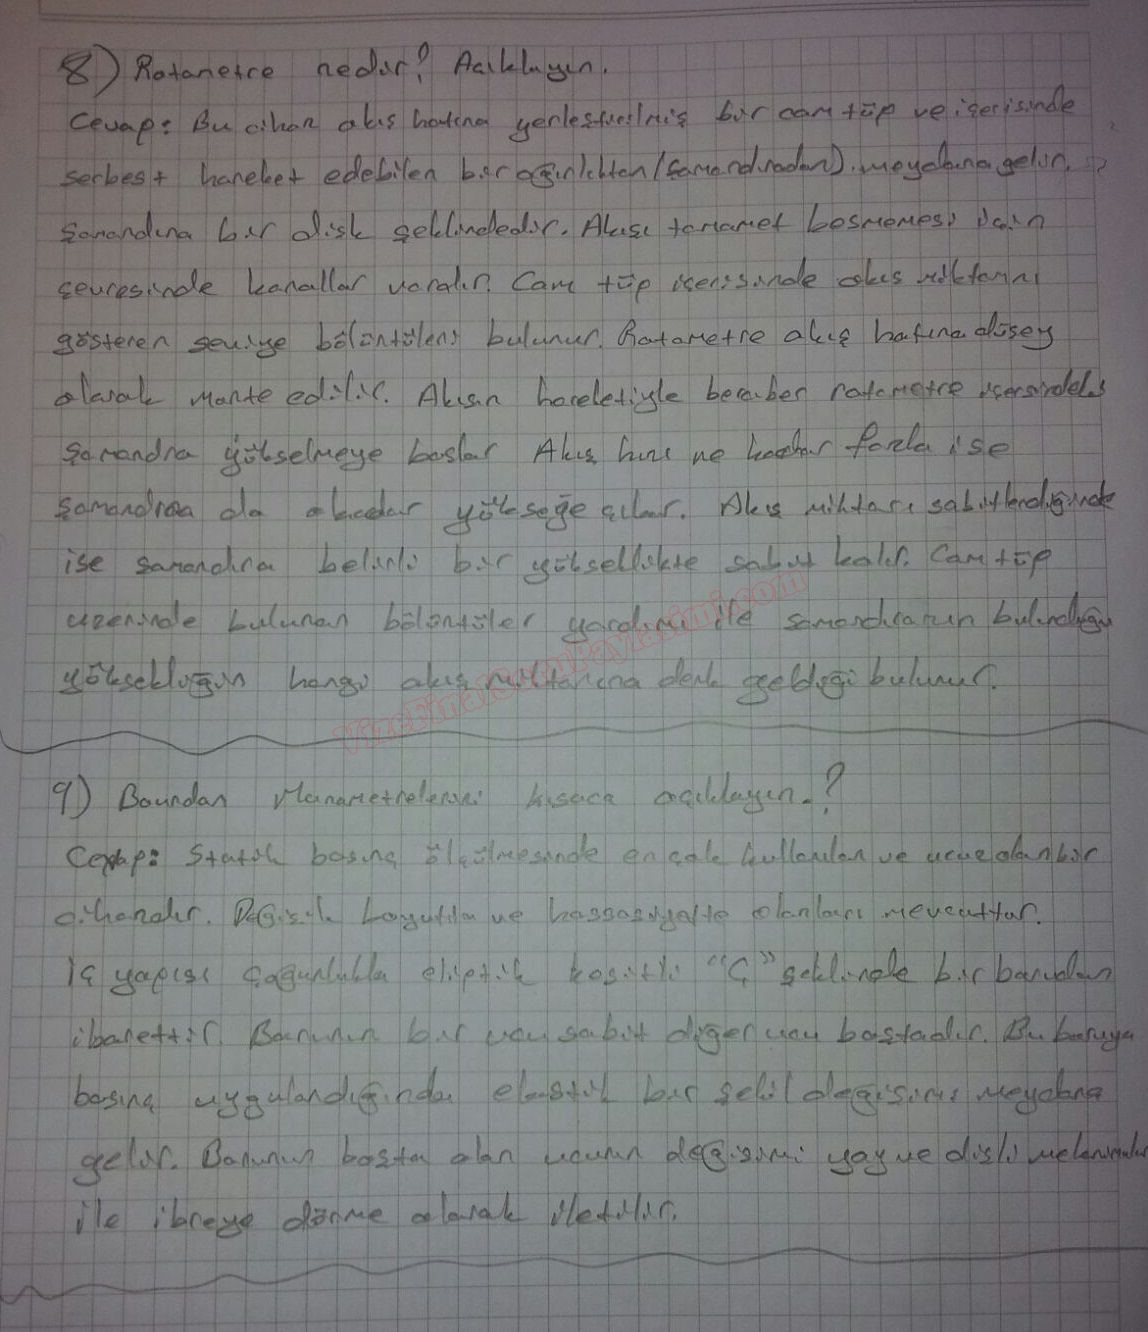 8) Rotametre nedir? Açıklayın.
Cevap: Bu cihaz akış hattına yerleştirilmiş bir cam tüp ve içerisinde
serbest hareket edebilen bir ağırlıktan (şamandıradan) meydana gelir.
Şamandıra bir disk şeklindedir. Akışı tamamet kesmemesi için
çevresinde kanallar vardır. Cam tüp içerisinde akış miktarını
gösteren seviye bölüntüleri bulunur. Rotametre akış hattına düşey
olarak monte edilir. Akışın hareketiyle beraber rotametre içersindeki
şamandıra yükselmeye başlar Akış hızı ne kadar fazla ise
şamandıra da okadar yükseğe çıkar. Akış miktarı sabitlendiğinde
ise şamandıra belirli bir yükseklikte sabit kalır. Cam tüp
üzerinde bulunan bölüntüler yardımı ile şamandıranın bulunduğu
yüksekliğin hangi akış miktarına denk geldiği bulunur.
VizeFinalSoruPaylasimi.com
9) Bourdan Manometrelerini kısaca açıklayın.?
Cevap: Statik basınç ölçülmesinde en çok kullanılan ve ucuz olan bir
cihazdır. Değişik boyutta ve hassasiyette olanları mevcuttur.
İç yapısı çoğunlukla eliptik kesitli "C" şeklinde bir borudan
ibarettir. Borunun bir ucu sabit diğer ucu boştadır. Bu boruya
basınç uygulandığında elastik bir şekil değişimi meydana
gelir. Borunun boşta olan ucunun değişimi yay ve dişli mekanizmalar
ile ibreye dönme olarak iletilir.